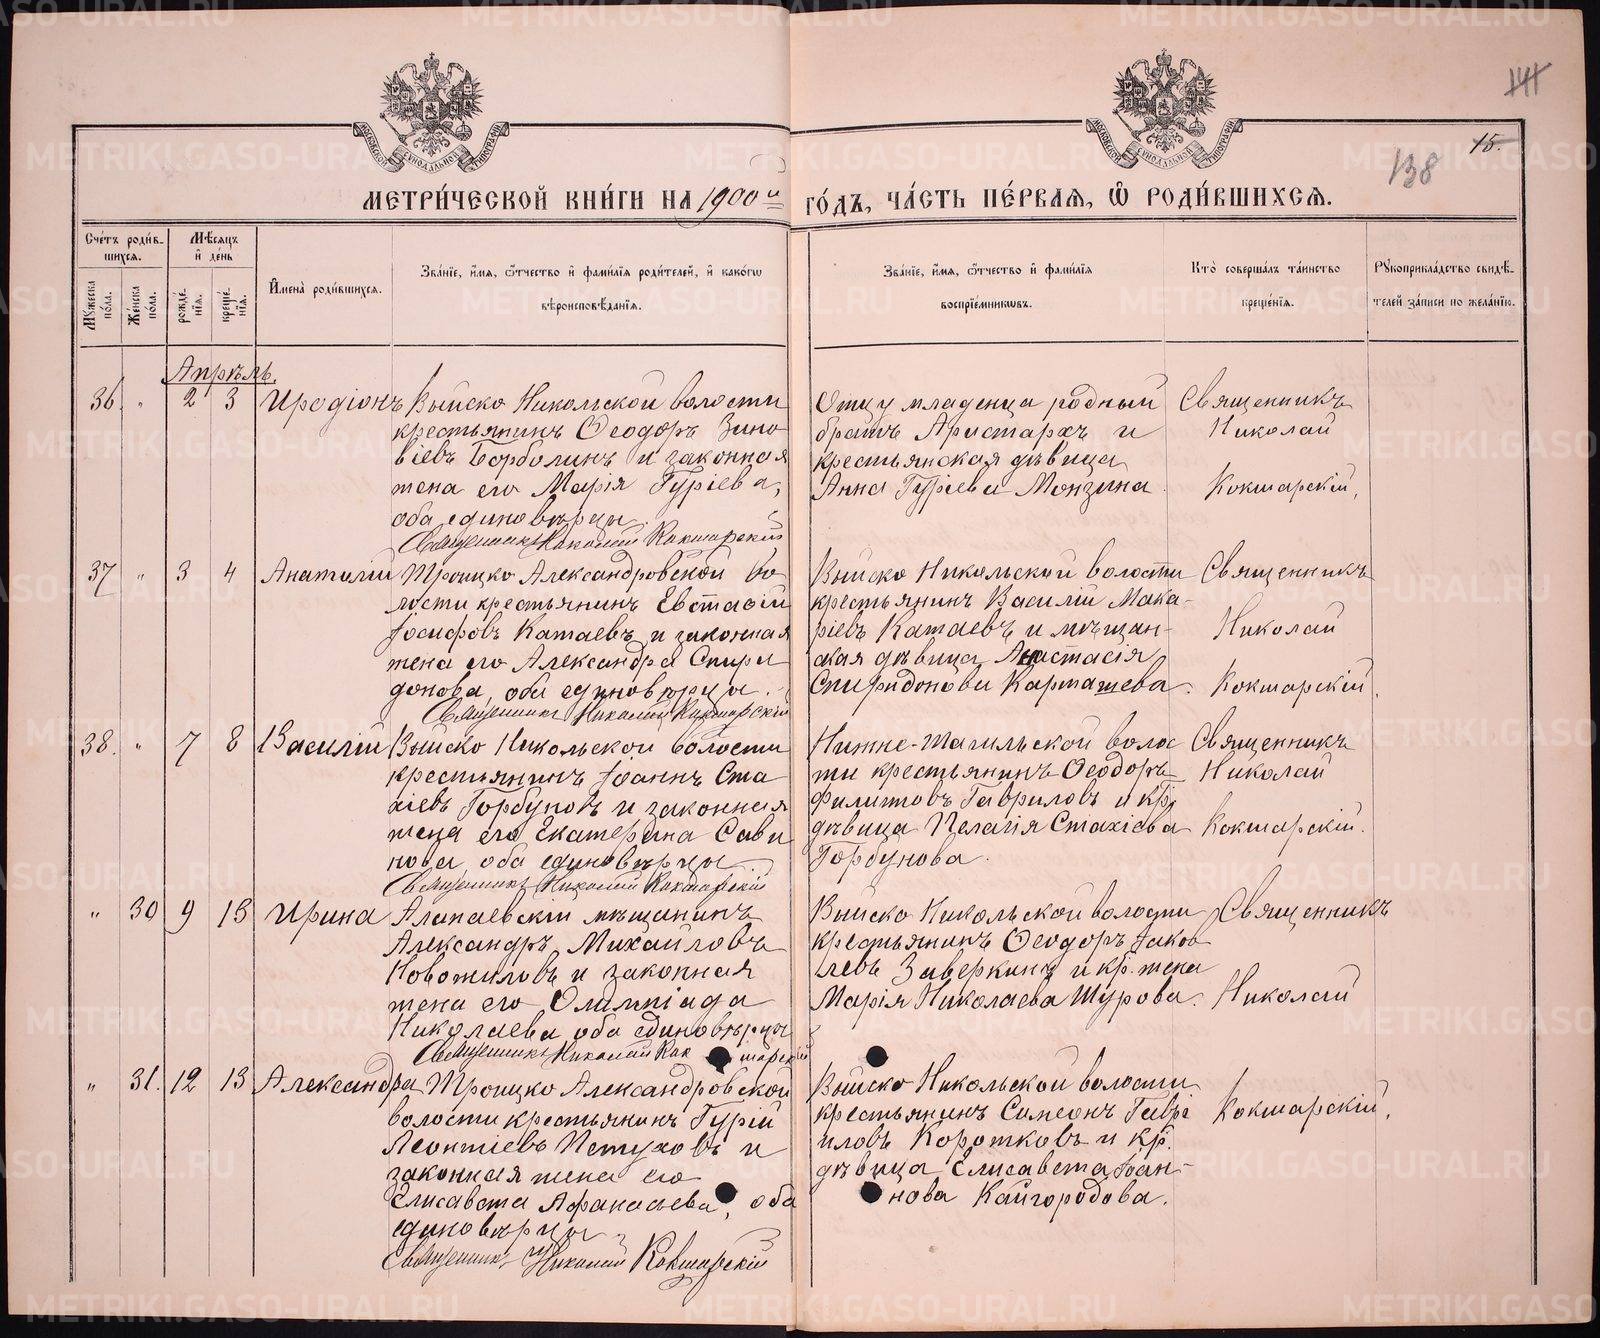 141
15.
138
МОСКОВСКОЙ СѴНОДАЛЬНОЙ ТИПОГРАФІИ
МОСКОВСКОЙ СѴНОДАЛЬНОЙ ТИПОГРАФІИ
МЕТРИ́ЧЕСКОЙ КНИ́ГИ НА 1900й ГО́ДЪ, ЧА́СТЬ ПЕ́РВАѦ, Ѡ҆ РОДИ́ВШИХСѦ.
Сче́тъ роди́в-
шихсѧ.
Мꙋ́жеска по́ла.
Же́нска по́ла.
Мѣ́сѧцъ
и҆ де́нь
рожде́-
нїѧ.
креще́-
нїѧ.
И҆мена̀ роди́вшихсѧ.
Зва́нїе, и҆́мѧ, ѻ҆́тчество и҆ фами́лїѧ роди́телей, и҆ како́гѡ
вѣроисповѣ́данїѧ.
Зва́нїе, и҆́мѧ, ѻ҆́тчество и҆ фами́лїѧ
воспрїе́мникѡвъ.
Кто̀ соверша́лъ та́инство
креще́нїѧ.
Рꙋкоприкла́дство свидѣ́-
телей за́писи по жела́нїю.
Апрѣль.
36. " 2 3 Иродіонъ
Выйско Никольской волости
крестьянинъ Ѳеодоръ Зино
віевъ Борболинъ и законная
жена его Марія Гуріева,
оба единовѣрцы.
Священникъ Николай Кокшарскій
Отцу младенца родный
братъ Аристархъ и
крестьянская дѣвица
Анна Гуріева Монзина.
Священникъ
Николай
Кокшарскій.
37 " 3 4 Анатолій
Троицко Александровской во
лости крестьянинъ Евстафій
Іосифовъ Катаевъ и законная
жена его Александра Спири
донова, оба единовѣрцы.
Священникъ Николай Кокшарскій
Выйско Никольской волости
крестьянинъ Василій Мака-
ріевъ Катаевъ и мѣщан-
ская дѣвица Анастасія
Спиридонова Карташева.
Священникъ
Николай
Кокшарскій.
38. " 7 8 Василій
Выйско Никольской волости
крестьянинъ Іоаннъ Ста
хіевъ Горбуновъ и законная
жена его Екатерина Сави
нова, оба единовѣрцы
Священникъ Николай Кокшарскій
Нижне-Тагильской волос
ти крестьянинъ Ѳеодоръ
Филитовъ Гавриловъ и кр.
дѣвица Пелагія Стахіева
Горбунова.
Священникъ
Николай
Кокшарскій.
" 30 9 13 Ирина
Алапаевскій мѣщанинъ
Александръ Михайловъ
Новожиловъ и законная
жена его Олимпіада
Николаева оба единовѣрцы
Священникъ Николай Кокшарскій
Выйско Никольской волости
крестьянинъ Ѳеодоръ Іаков
левъ Заверкинъ и кр. жена
Марія Николаева Шурова.
Священникъ
Николай
" 31. 12 13 Александра
Троицко Александровской
волости крестьянинъ Гурій
Леонтіевъ Пѣтуховъ и
законная жена его
Елисавета Афанасьева, оба
единовѣрцы.
Священникъ Николай Кокшарскій
Выйско Никольской волости
крестьянинъ Симеонъ Гаврі
иловъ Коротковъ и кр.
дѣвица Елисавета Іоан-
нова Кайгородова.
Кокшарскій.
METRIKI.GASO-URAL.RU